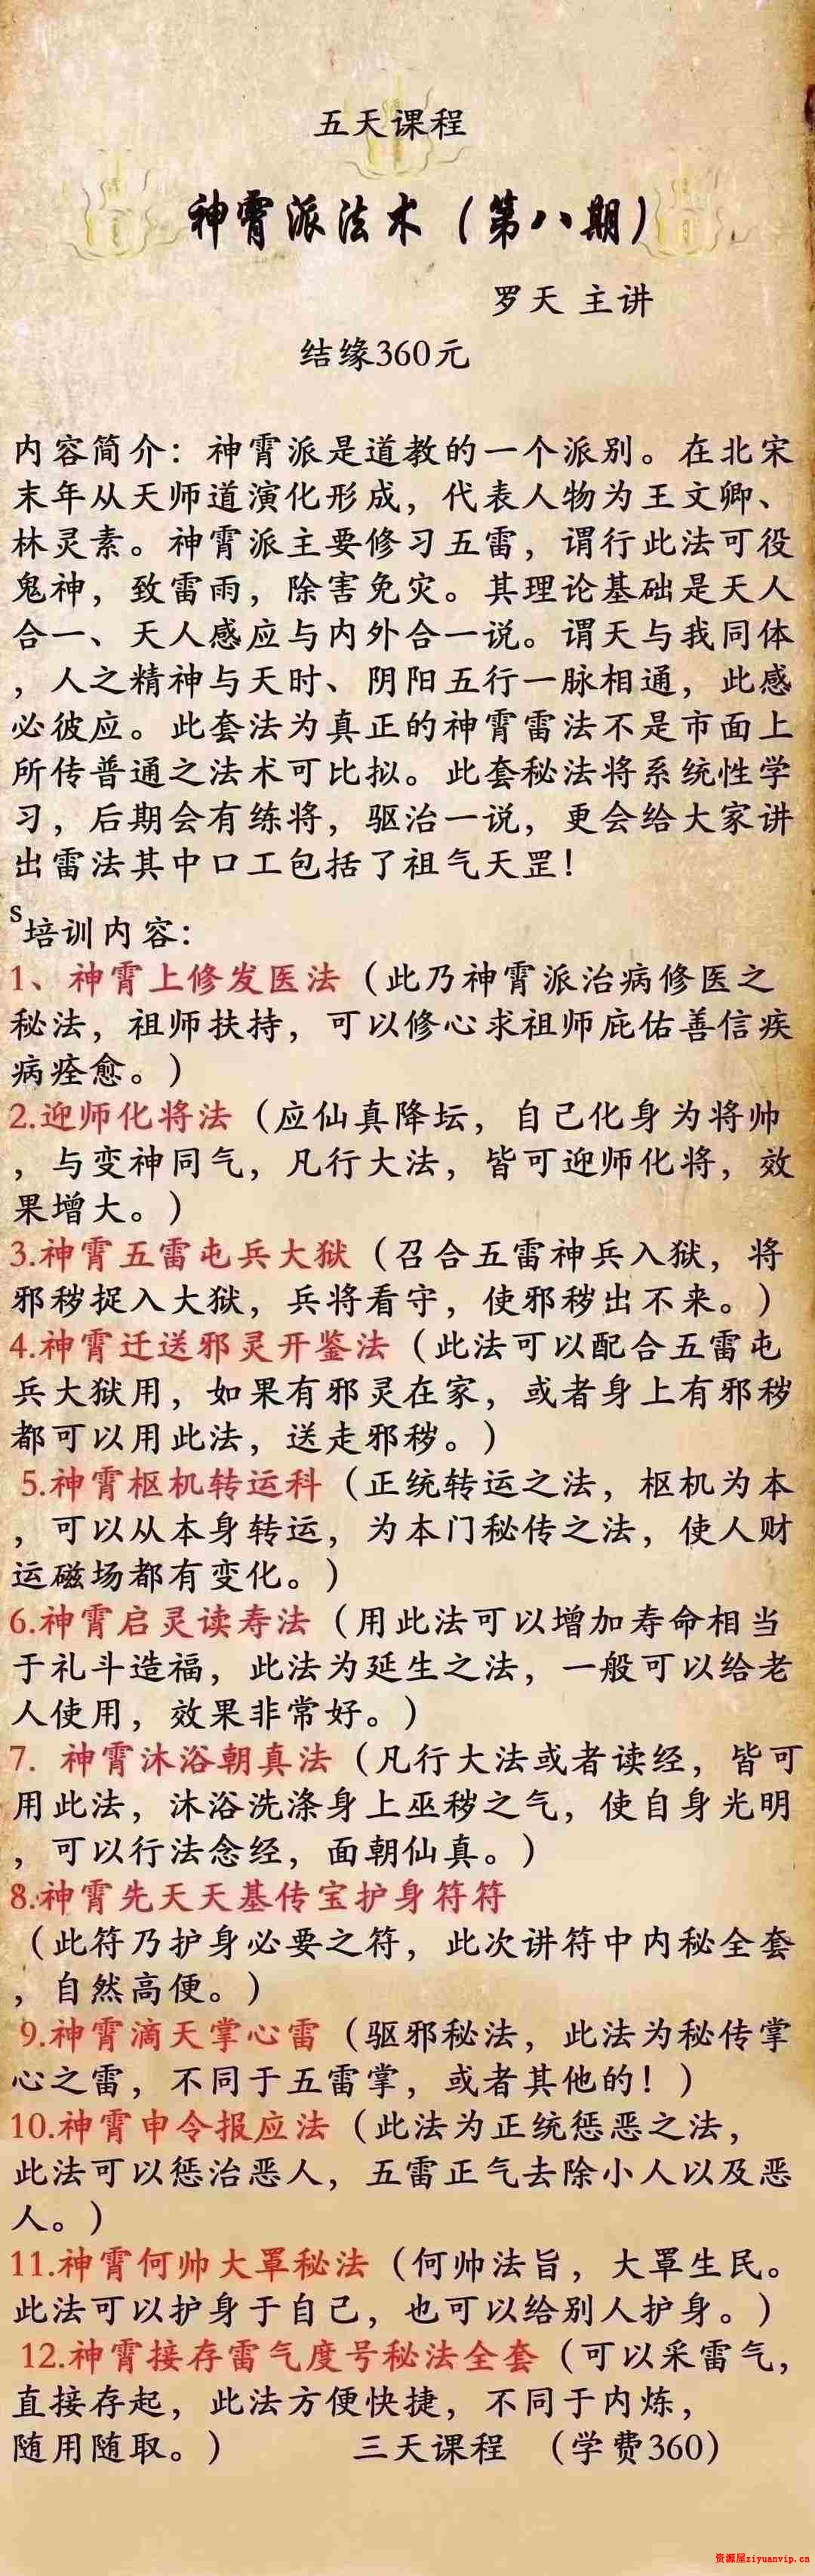 五天课程
神霄派法术（第八期）
罗天 主讲
结缘360元
内容简介：神霄派是道教的一个派别。在北宋
末年从天师道演化形成，代表人物为王文卿、
林灵素。神霄派主要修习五雷，谓行此法可役
鬼神，致雷雨，除害免灾。其理论基础是天人
合一、天人感应与内外合一说。谓天与我同体
，人之精神与天时、阴阳五行一脉相通，此感
必彼应。此套法为真正的神霄雷法不是市面上
所传普通之法术可比拟。此套秘法将系统性学
习，后期会有练将，驱治一说，更会给大家讲
出雷法其中口工包括了祖气天罡！
s培训内容：
1、神霄上修发医法（此乃神霄派治病修医之
秘法，祖师扶持，可以修心求祖师庇佑善信疾
病痊愈。）
2.迎师化将法（应仙真降坛，自己化身为将帅
，与变神同气，凡行大法，皆可迎师化将，效
果增大。）
3.神霄五雷屯兵大狱（召合五雷神兵入狱，将
邪秽捉入大狱，兵将看守，使邪秽出不来。）
4.神霄迁送邪灵开鉴法（此法可以配合五雷屯
兵大狱用，如果有邪灵在家，或者身上有邪秽
都可以用此法，送走邪秽。）
5.神霄枢机转运科（正统转运之法，枢机为本
，可以从本身转运，为本门秘传之法，使人财
运磁场都有变化。）
6.神霄启灵读寿法（用此法可以增加寿命相当
于礼斗造福，此法为延生之法，一般可以给老
人使用，效果非常好。）
7. 神霄沐浴朝真法（凡行大法或者读经，皆可
用此法，沐浴洗涤身上巫秽之气，使自身光明
，可以行法念经，面朝仙真。）
8.神霄先天天基传宝护身符符
（此符乃护身必要之符，此次讲符中内秘全套
，自然高便。）
9.神霄滴天掌心雷（驱邪秘法，此法为秘传掌
心之雷，不同于五雷掌，或者其他的！）
10.神霄申令报应法（此法为正统惩恶之法，
此法可以惩治恶人，五雷正气去除小人以及恶
人。）
11.神霄何帅大罩秘法（何帅法旨，大罩生民。
此法可以护身于自己，也可以给别人护身。）
12.神霄接存雷气度号秘法全套（可以采雷气，
直接存起，此法方便快捷，不同于内炼，
随用随取。） 三天课程 （学费360）
资源屋ziyuanvip.cn